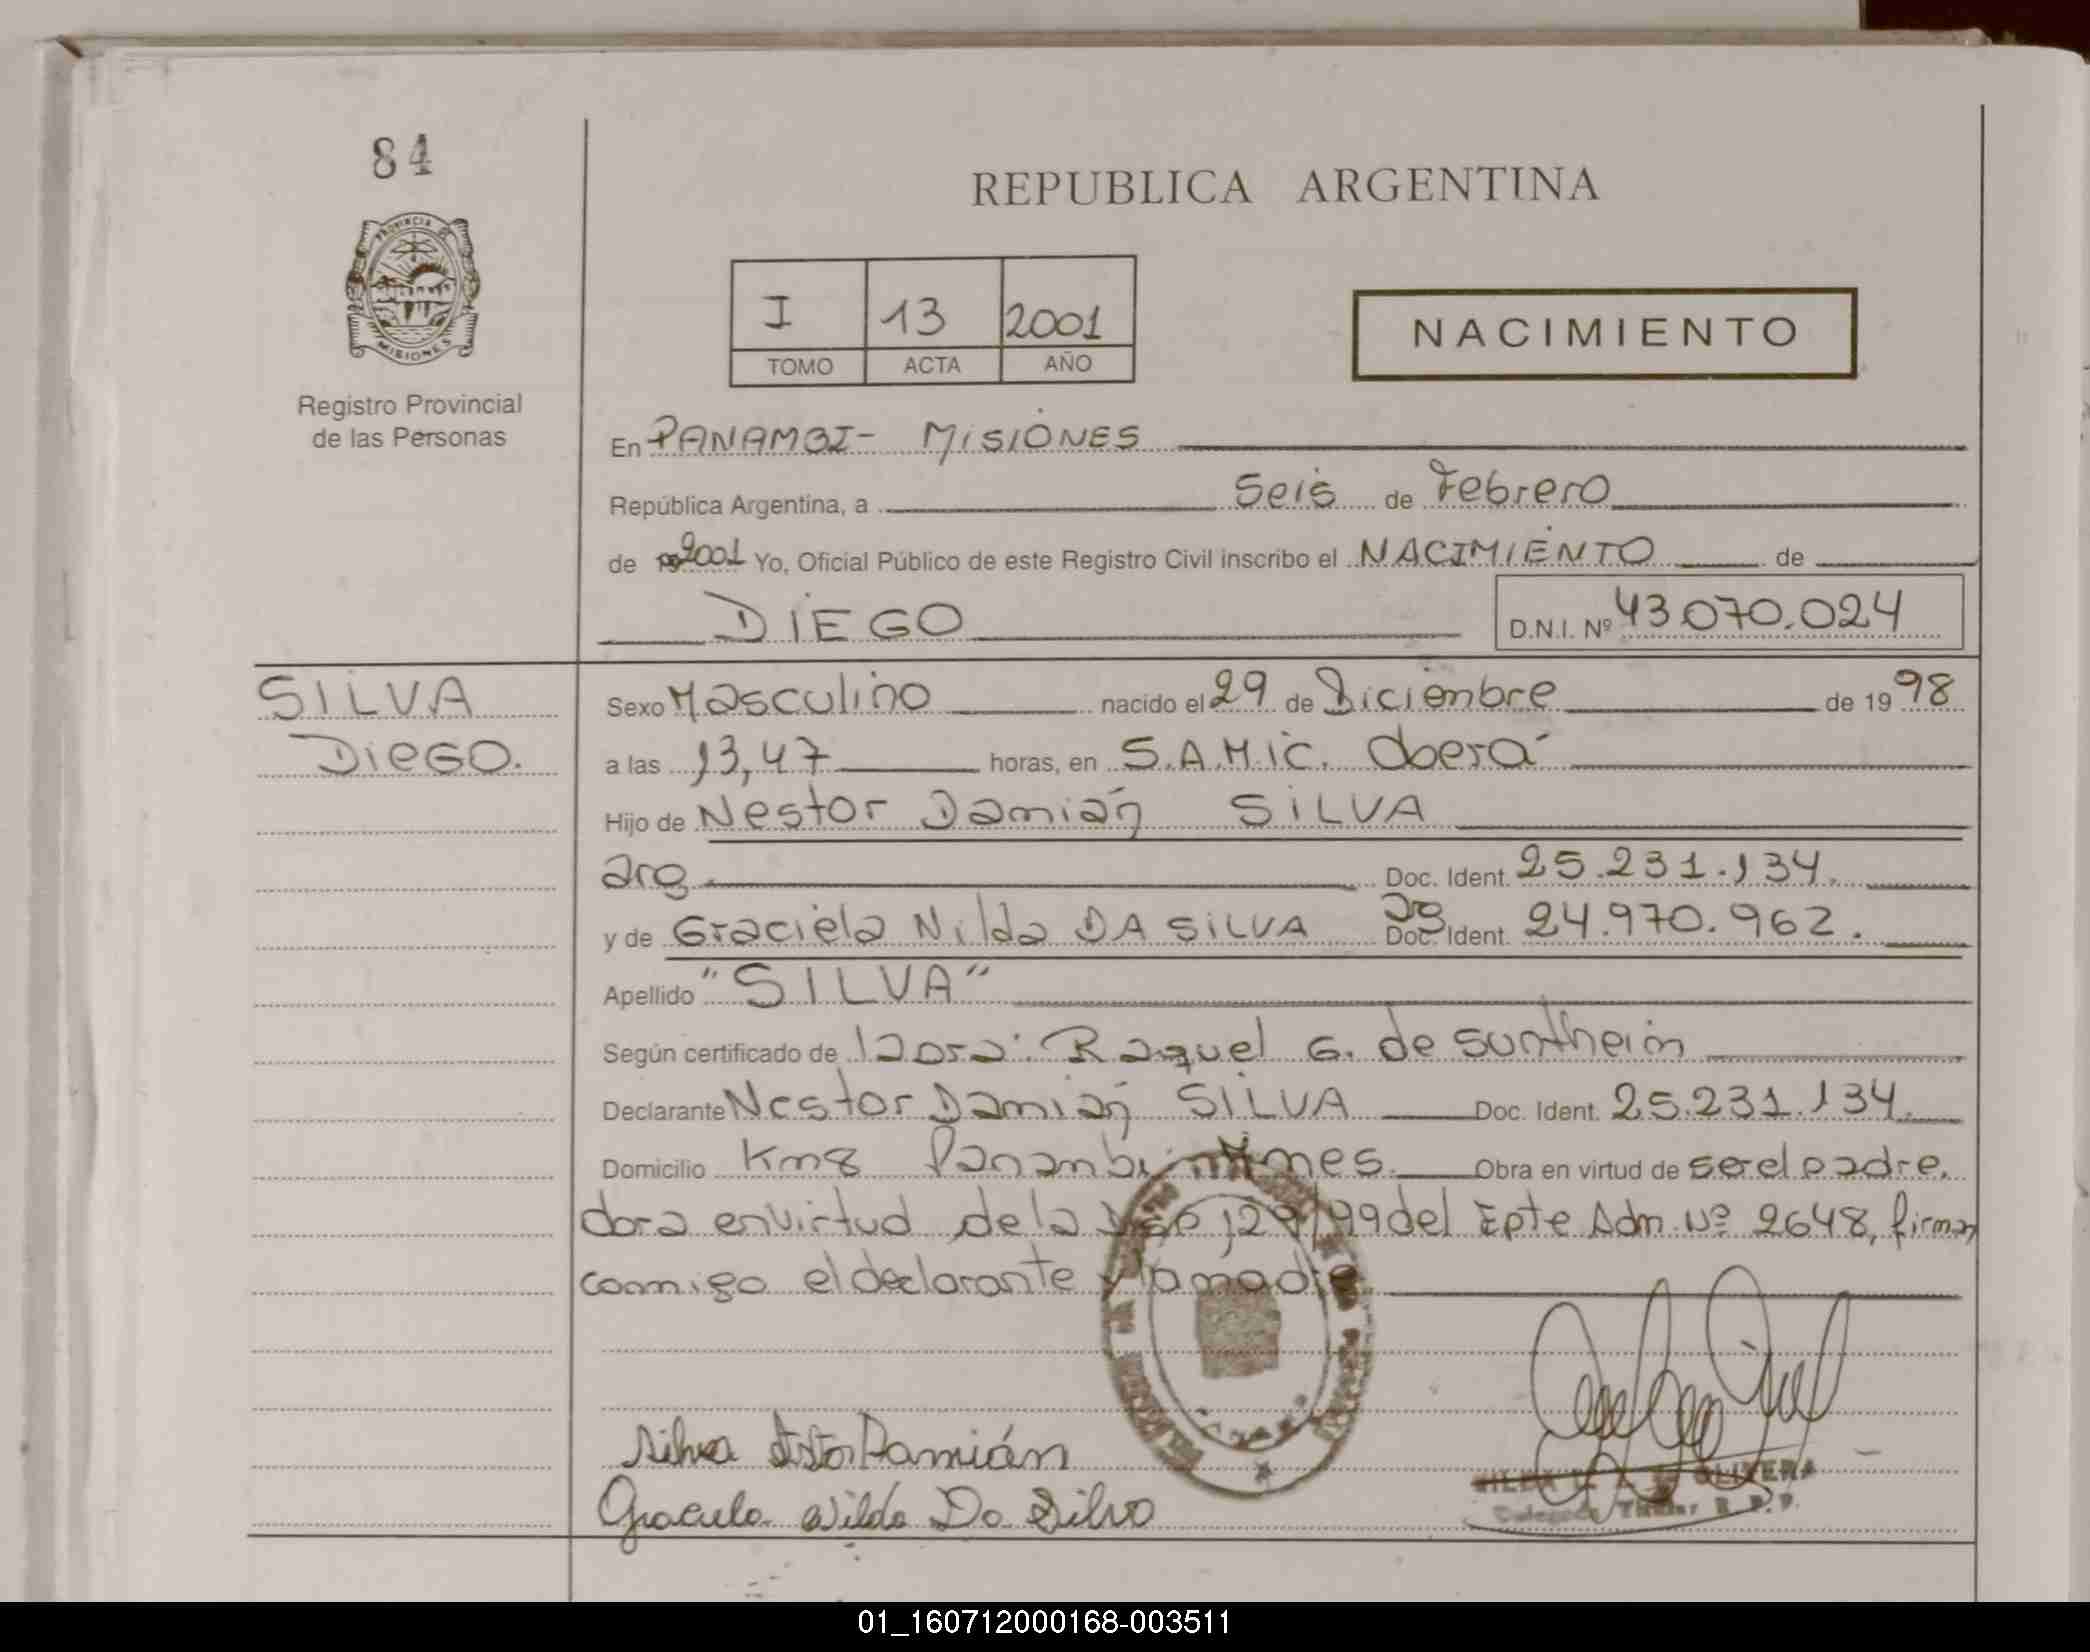 84
REPUBLICA ARGENTINA
PROVINCIA DE
MISIONES
I 13 2001
TOMO ACTA AÑO
NACIMIENTO
Registro Provincial
de las Personas
En PANAMBI - MISIONES
República Argentina, a Seis de Febrero
de 2001 Yo, Oficial Público de este Registro Civil inscribo el NACIMIENTO de
DIEGO D.N.I. Nº 43.070.024
SILVA
DIEGO.
Sexo Masculino nacido el 29 de Diciembre de 1998
a las 13,47 horas, en S.A.M.ic. Oberá
Hijo de Nestor Damián SILVA
arg. Doc. Ident. 25.231.134.
y de Graciela Nilda DA SILVA arg Doc. Ident. 24.970.962.
Apellido "SILVA"
Según certificado de la Dra. Raquel G. de Suntheim
Declarante Nestor Damián SILVA Doc. Ident. 25.231.134.
Domicilio Km 8 Panambi Mnes. Obra en virtud de ser el padre.
dora en virtud de la 129/99 del Epte Adm. Nº 2648, firman
conmigo el declarante y la madre
Silva Damián
Graciela Nilda Da Silva
OLIVERA
Titular R.P.P.
01_160712000168-003511